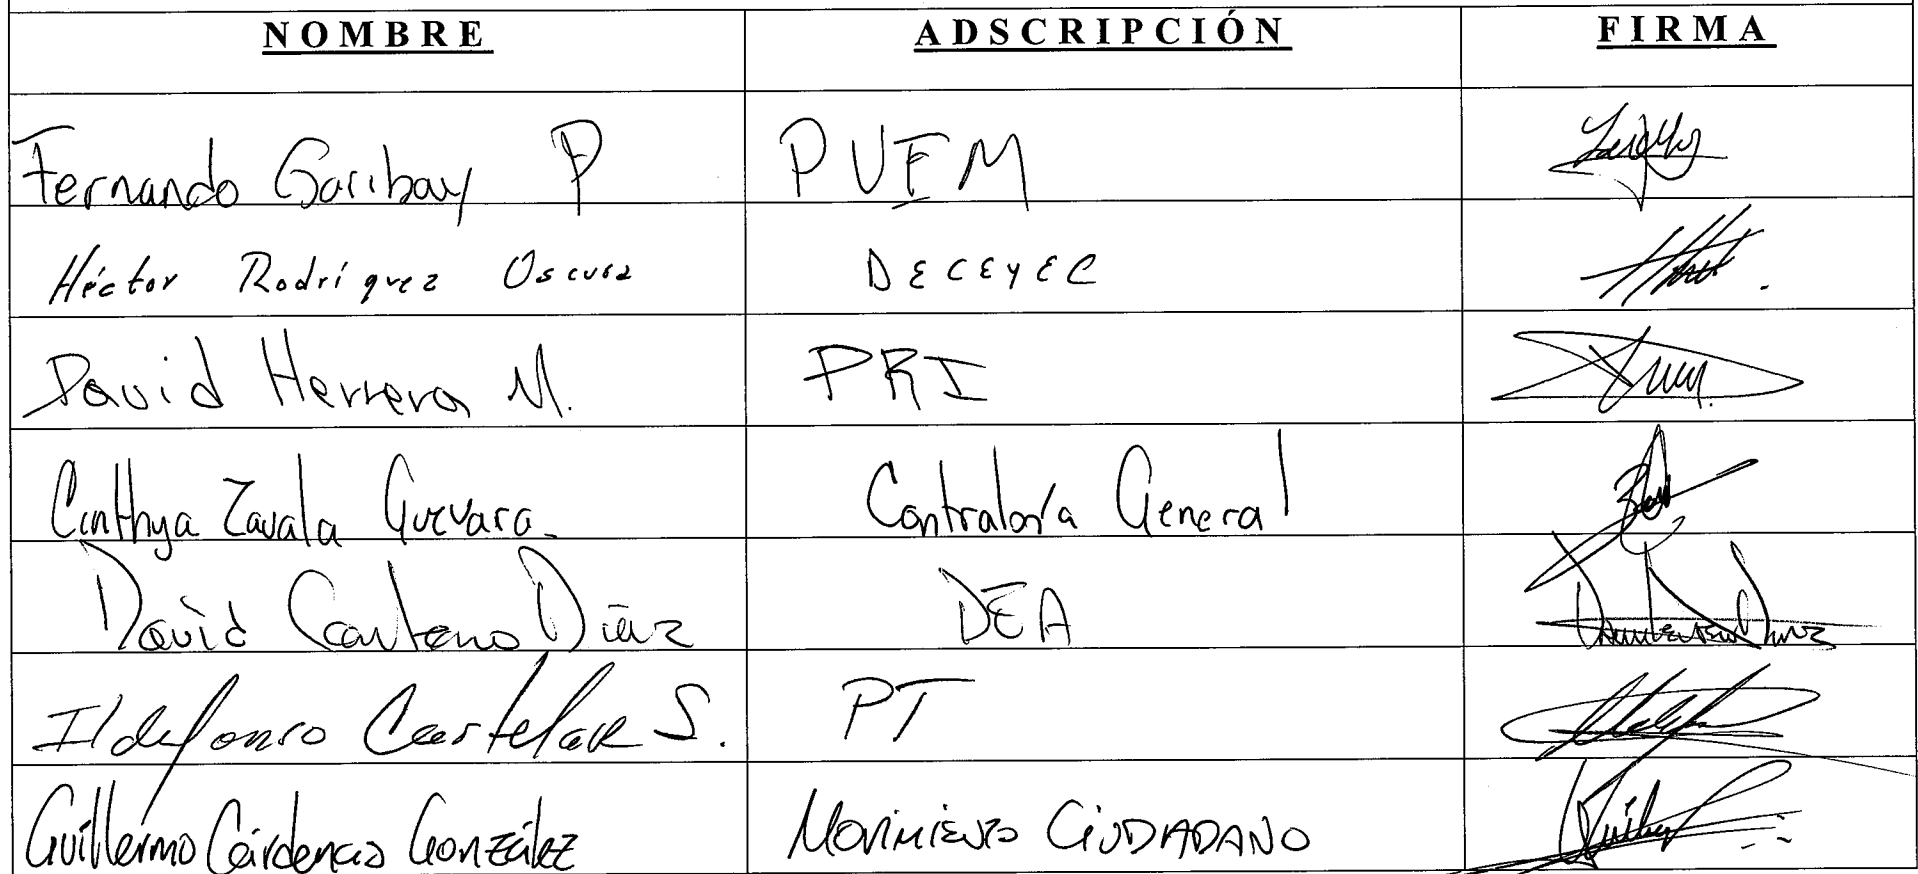 NOMBRE ADSCRIPCIÓN FIRMA
Fernando Garibay P PUEM
Héctor Rodríguez Oscura DECEYEC
David Herrera M. PRI
Cinthya Zavala Guevara. Contraloría General
David Centeno Díaz DEA
Ildefonso Castelar S. PT
Guillermo Cárdenas González MOVIMIENTO CIUDADANO